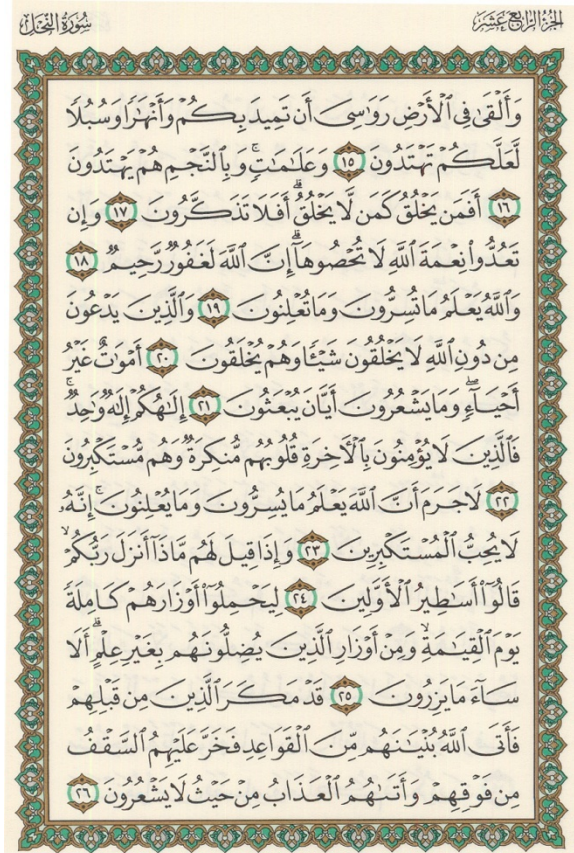 الجزء الرابع عشر
سورة النحل
وَأَلْقَىٰ فِي ٱلْأَرْضِ رَوَٰسِيَ أَن تَمِيدَ بِكُمْ وَأَنْهَٰرًا وَسُبُلًا
لَّعَلَّكُمْ تَهْتَدُونَ ١٥ وَعَلَٰمَٰتٍ ۚ وَبِٱلنَّجْمِ هُمْ يَهْتَدُونَ
١٦ أَفَمَن يَخْلُقُ كَمَن لَّا يَخْلُقُ ۗ أَفَلَا تَذَكَّرُونَ ١٧ وَإِن
تَعُدُّوا۟ نِعْمَةَ ٱللَّهِ لَا تُحْصُوهَآ ۗ إِنَّ ٱللَّهَ لَغَفُورٌ رَّحِيمٌ ١٨
وَٱللَّهُ يَعْلَمُ مَا تُسِرُّونَ وَمَا تُعْلِنُونَ ١٩ وَٱلَّذِينَ يَدْعُونَ
مِن دُونِ ٱللَّهِ لَا يَخْلُقُونَ شَيْـًٔا وَهُمْ يُخْلَقُونَ ٢٠ أَمْوَٰتٌ غَيْرُ
أَحْيَآءٍ ۖ وَمَا يَشْعُرُونَ أَيَّانَ يُبْعَثُونَ ٢١ إِلَٰهُكُمْ إِلَٰهٌ وَٰحِدٌ ۚ
فَٱلَّذِينَ لَا يُؤْمِنُونَ بِٱلْءَاخِرَةِ قُلُوبُهُم مُّنكِرَةٌ وَهُم مُّسْتَكْبِرُونَ
٢٢ لَا جَرَمَ أَنَّ ٱللَّهَ يَعْلَمُ مَا يُسِرُّونَ وَمَا يُعْلِنُونَ ۚ إِنَّهُۥ
لَا يُحِبُّ ٱلْمُسْتَكْبِرِينَ ٢٣ وَإِذَا قِيلَ لَهُم مَّاذَآ أَنزَلَ رَبُّكُمْ ۙ
قَالُوٓا۟ أَسَٰطِيرُ ٱلْأَوَّلِينَ ٢٤ لِيَحْمِلُوٓا۟ أَوْزَارَهُمْ كَامِلَةً
يَوْمَ ٱلْقِيَٰمَةِ ۙ وَمِنْ أَوْزَارِ ٱلَّذِينَ يُضِلُّونَهُم بِغَيْرِ عِلْمٍ ۗ أَلَا
سَآءَ مَا يَزِرُونَ ٢٥ قَدْ مَكَرَ ٱلَّذِينَ مِن قَبْلِهِمْ
فَأَتَى ٱللَّهُ بُنْيَٰنَهُم مِّنَ ٱلْقَوَاعِدِ فَخَرَّ عَلَيْهِمُ ٱلسَّقْفُ
مِن فَوْقِهِمْ وَأَتَىٰهُمُ ٱلْعَذَابُ مِنْ حَيْثُ لَا يَشْعُرُونَ ٢٦